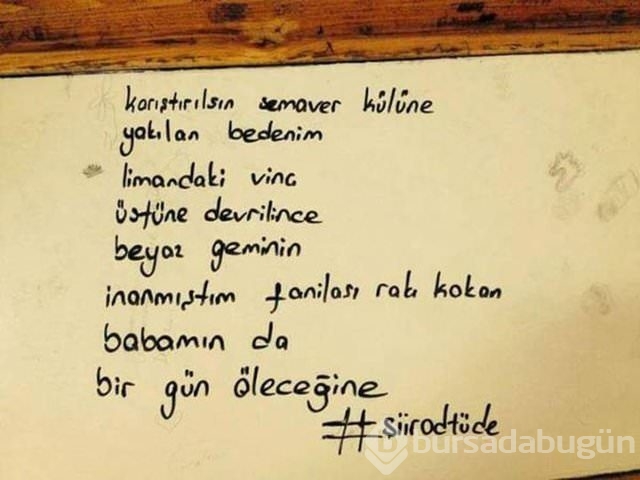 karıştırılsın semaver külüne
yakılan bedenim
limandaki vinc
üstüne devrilince
beyaz geminin
inanmıştım fanilası rakı kokan
babamın da
bir gün öleceğine
#şiirodtüde
bursadabugün